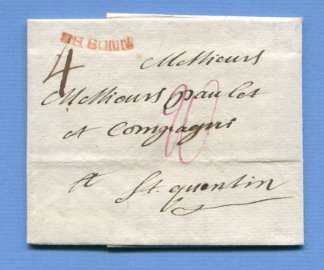 4
Messieurs
Messieurs paulet
et Compagnie
A St. quentin